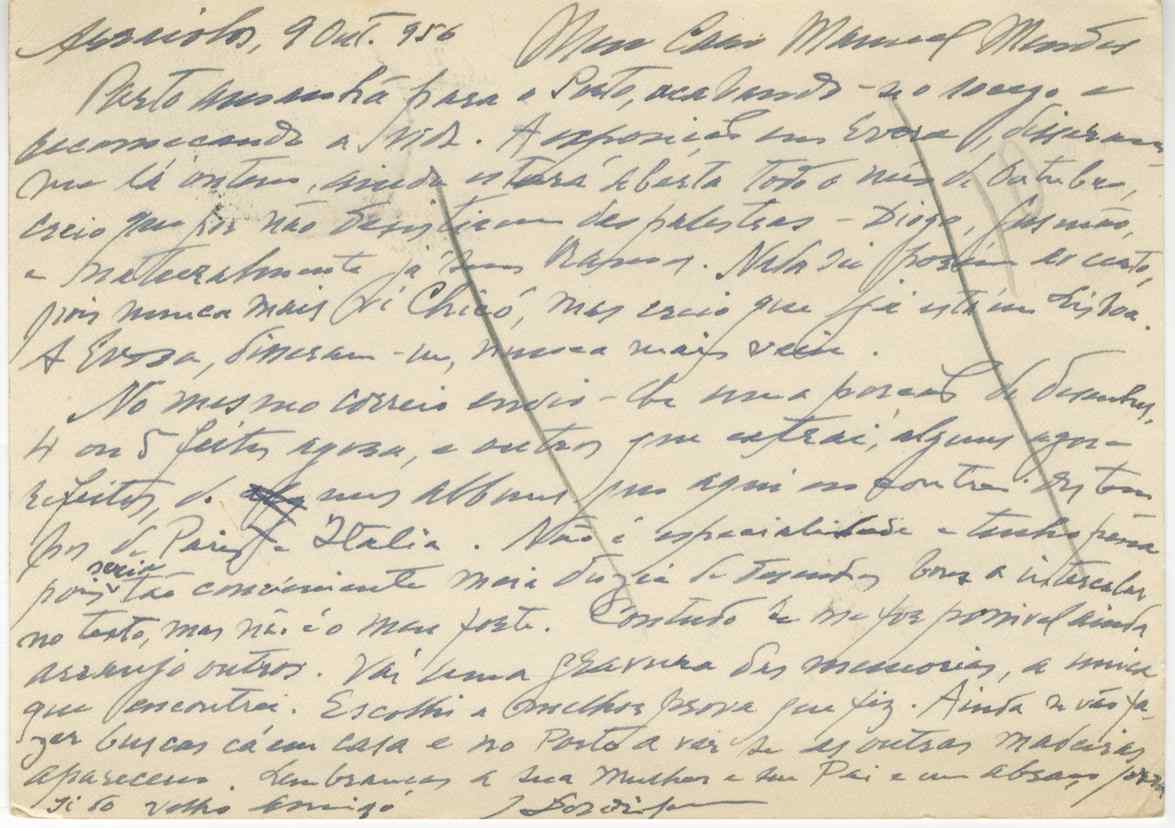 Arraiolos, 9 Out. 956 Meu Caro Manuel Mendes
Parto amanhã para o Porto, acabando-se o socego e
recomeçando a vida. A exposição em Evora, disseram
me lá ontem, ainda estará aberta todo o mês de Outubro,
creio que por não desistirem das palestras – Diogo, Gusmão,
e naturalmente já sem Ramos. Nada sei porém ao certo,
pois nunca mais vi Chicó, mas creio que já está em Lisboa.
A Evora, disseram-me, nunca mais veiu.
No mesmo correio envio-lhe uma porção de desenhos,
4 ou 5 feitos agora, e outros que extraí, alguns agora
refeitos, de meus albuns que aqui encontrei dos tem
pos de Paris e Italia. Não é especialidade e tenho pena
pois seria tão conveniente meia duzia de desenhos bons a intercalar
no texto, mas não é o meu forte. Contudo se me for possivel ainda
arranjo outros. Vai uma gravura das memorias, a unica
que encontrei. Escolhi a melhor prova que fiz. Ainda se vão fa-
zer buscas cá em casa e no Porto a ver se as outras madeiras
aparecem. Lembranças a sua mulher e seu Pai e um abraço para
si do velho amigo